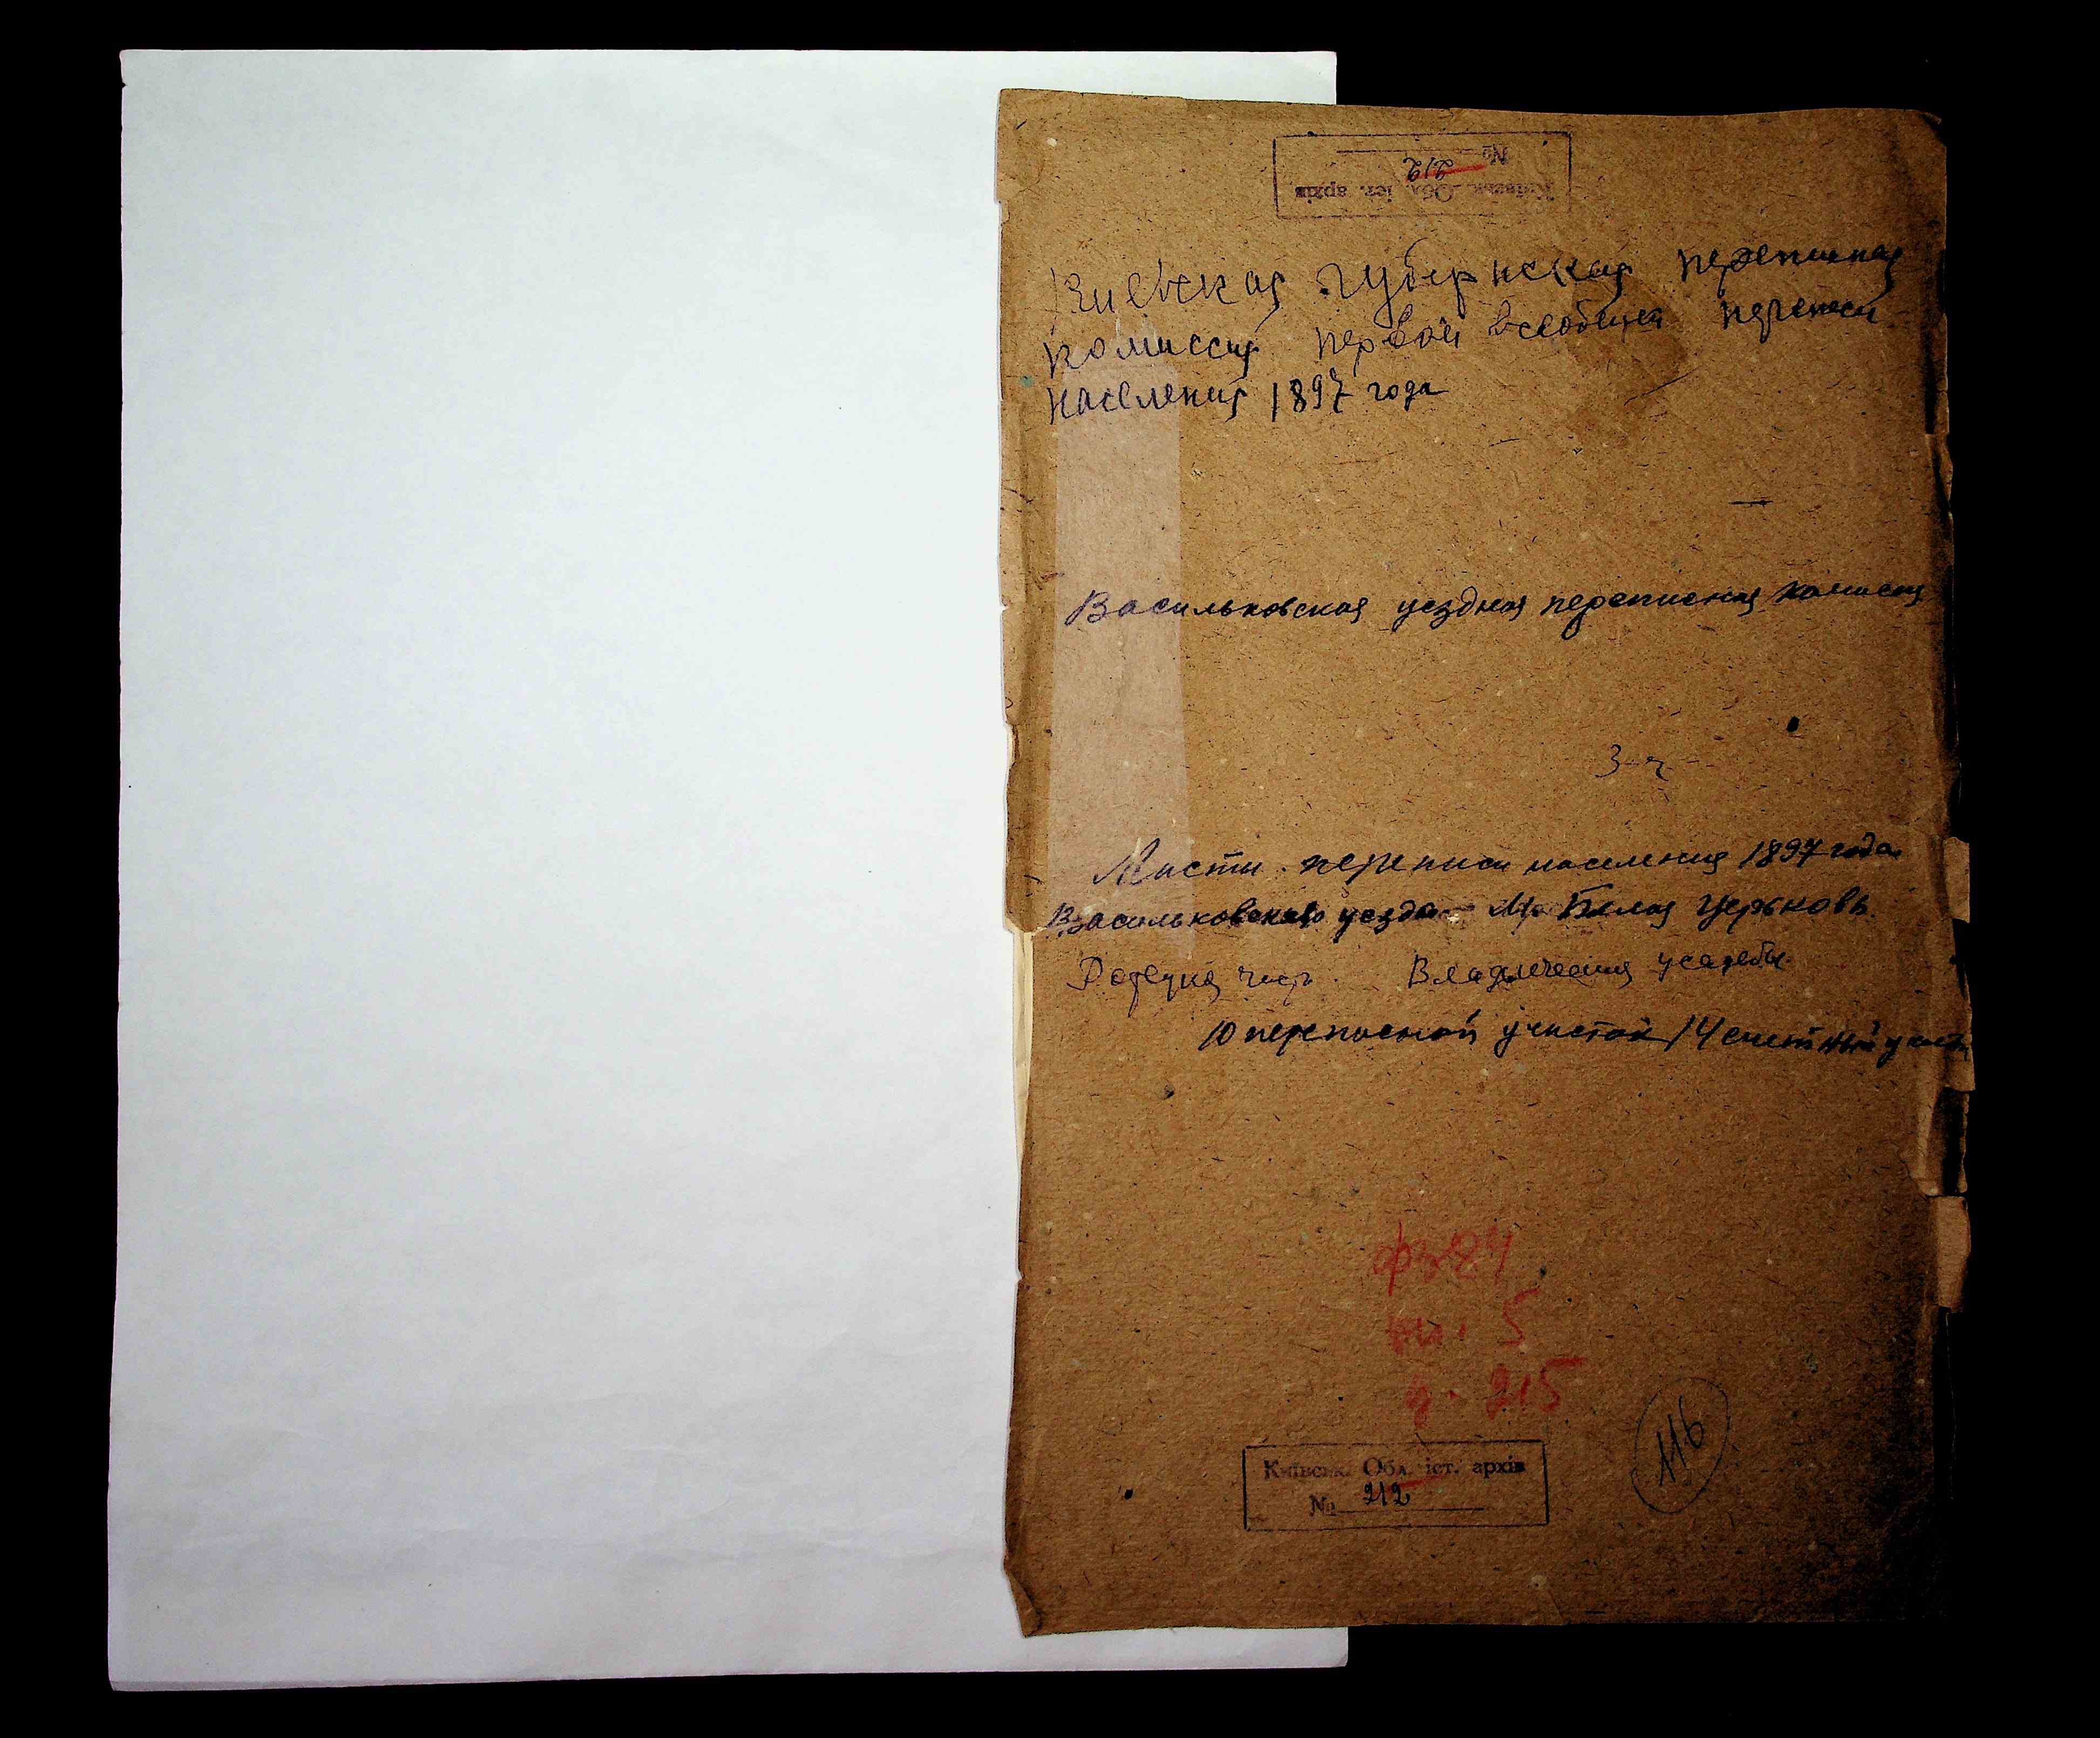 Київськ. Обл. іст. архів
№ 212
Киевская губернская переписная
комиссия первой всеобщей переписи
населения 1897 года
Васильковская уездная переписная комиссия
3-ч
Листы переписи населения 1897 года
Васильковского уезда М. Белая Церковь
часть. Владельческие усадьбы
10 переписной участок 14 счетный участок
ф 384
оп. 5
д. 215
Київськ. Обл. іст. архів
№ 212
116